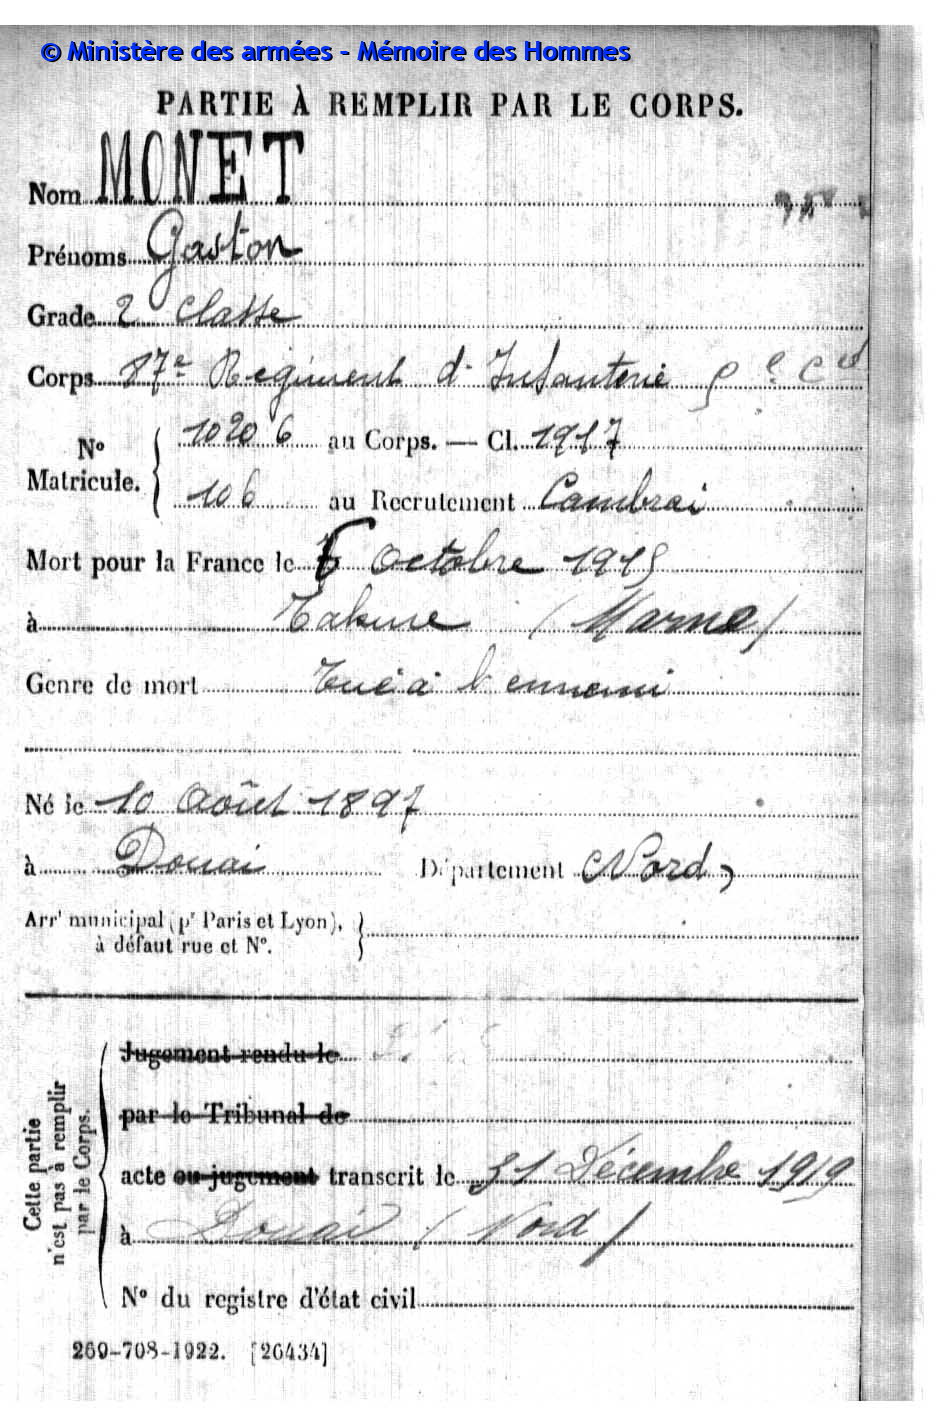 © Ministère des armées - Mémoire des Hommes
PARTIE À REMPLIR PAR LE CORPS.
Nom MONET
Prénoms Gaston
Grade 2 Classe
Corps 87e Régiment d'Infanterie 5e Cie
No Matricule. 10206 au Corps. — Cl. 1917
106 au Recrutement Cambrai
Mort pour la France le Octobre 1915
à Tahure (Marne)
Genre de mort Tué à l'ennemi
Né le 10 Août 1897
à Douai Département Nord
Arrt municipal (pr Paris et Lyon),
à défaut rue et No.
Cette partie n'est pas à remplir par le Corps.
Jugement rendu le
par le Tribunal de
acte ou jugement transcrit le 31 Décembre 1919
à Douai (Nord)
No du registre d'état civil
269-708-1922. [26434]